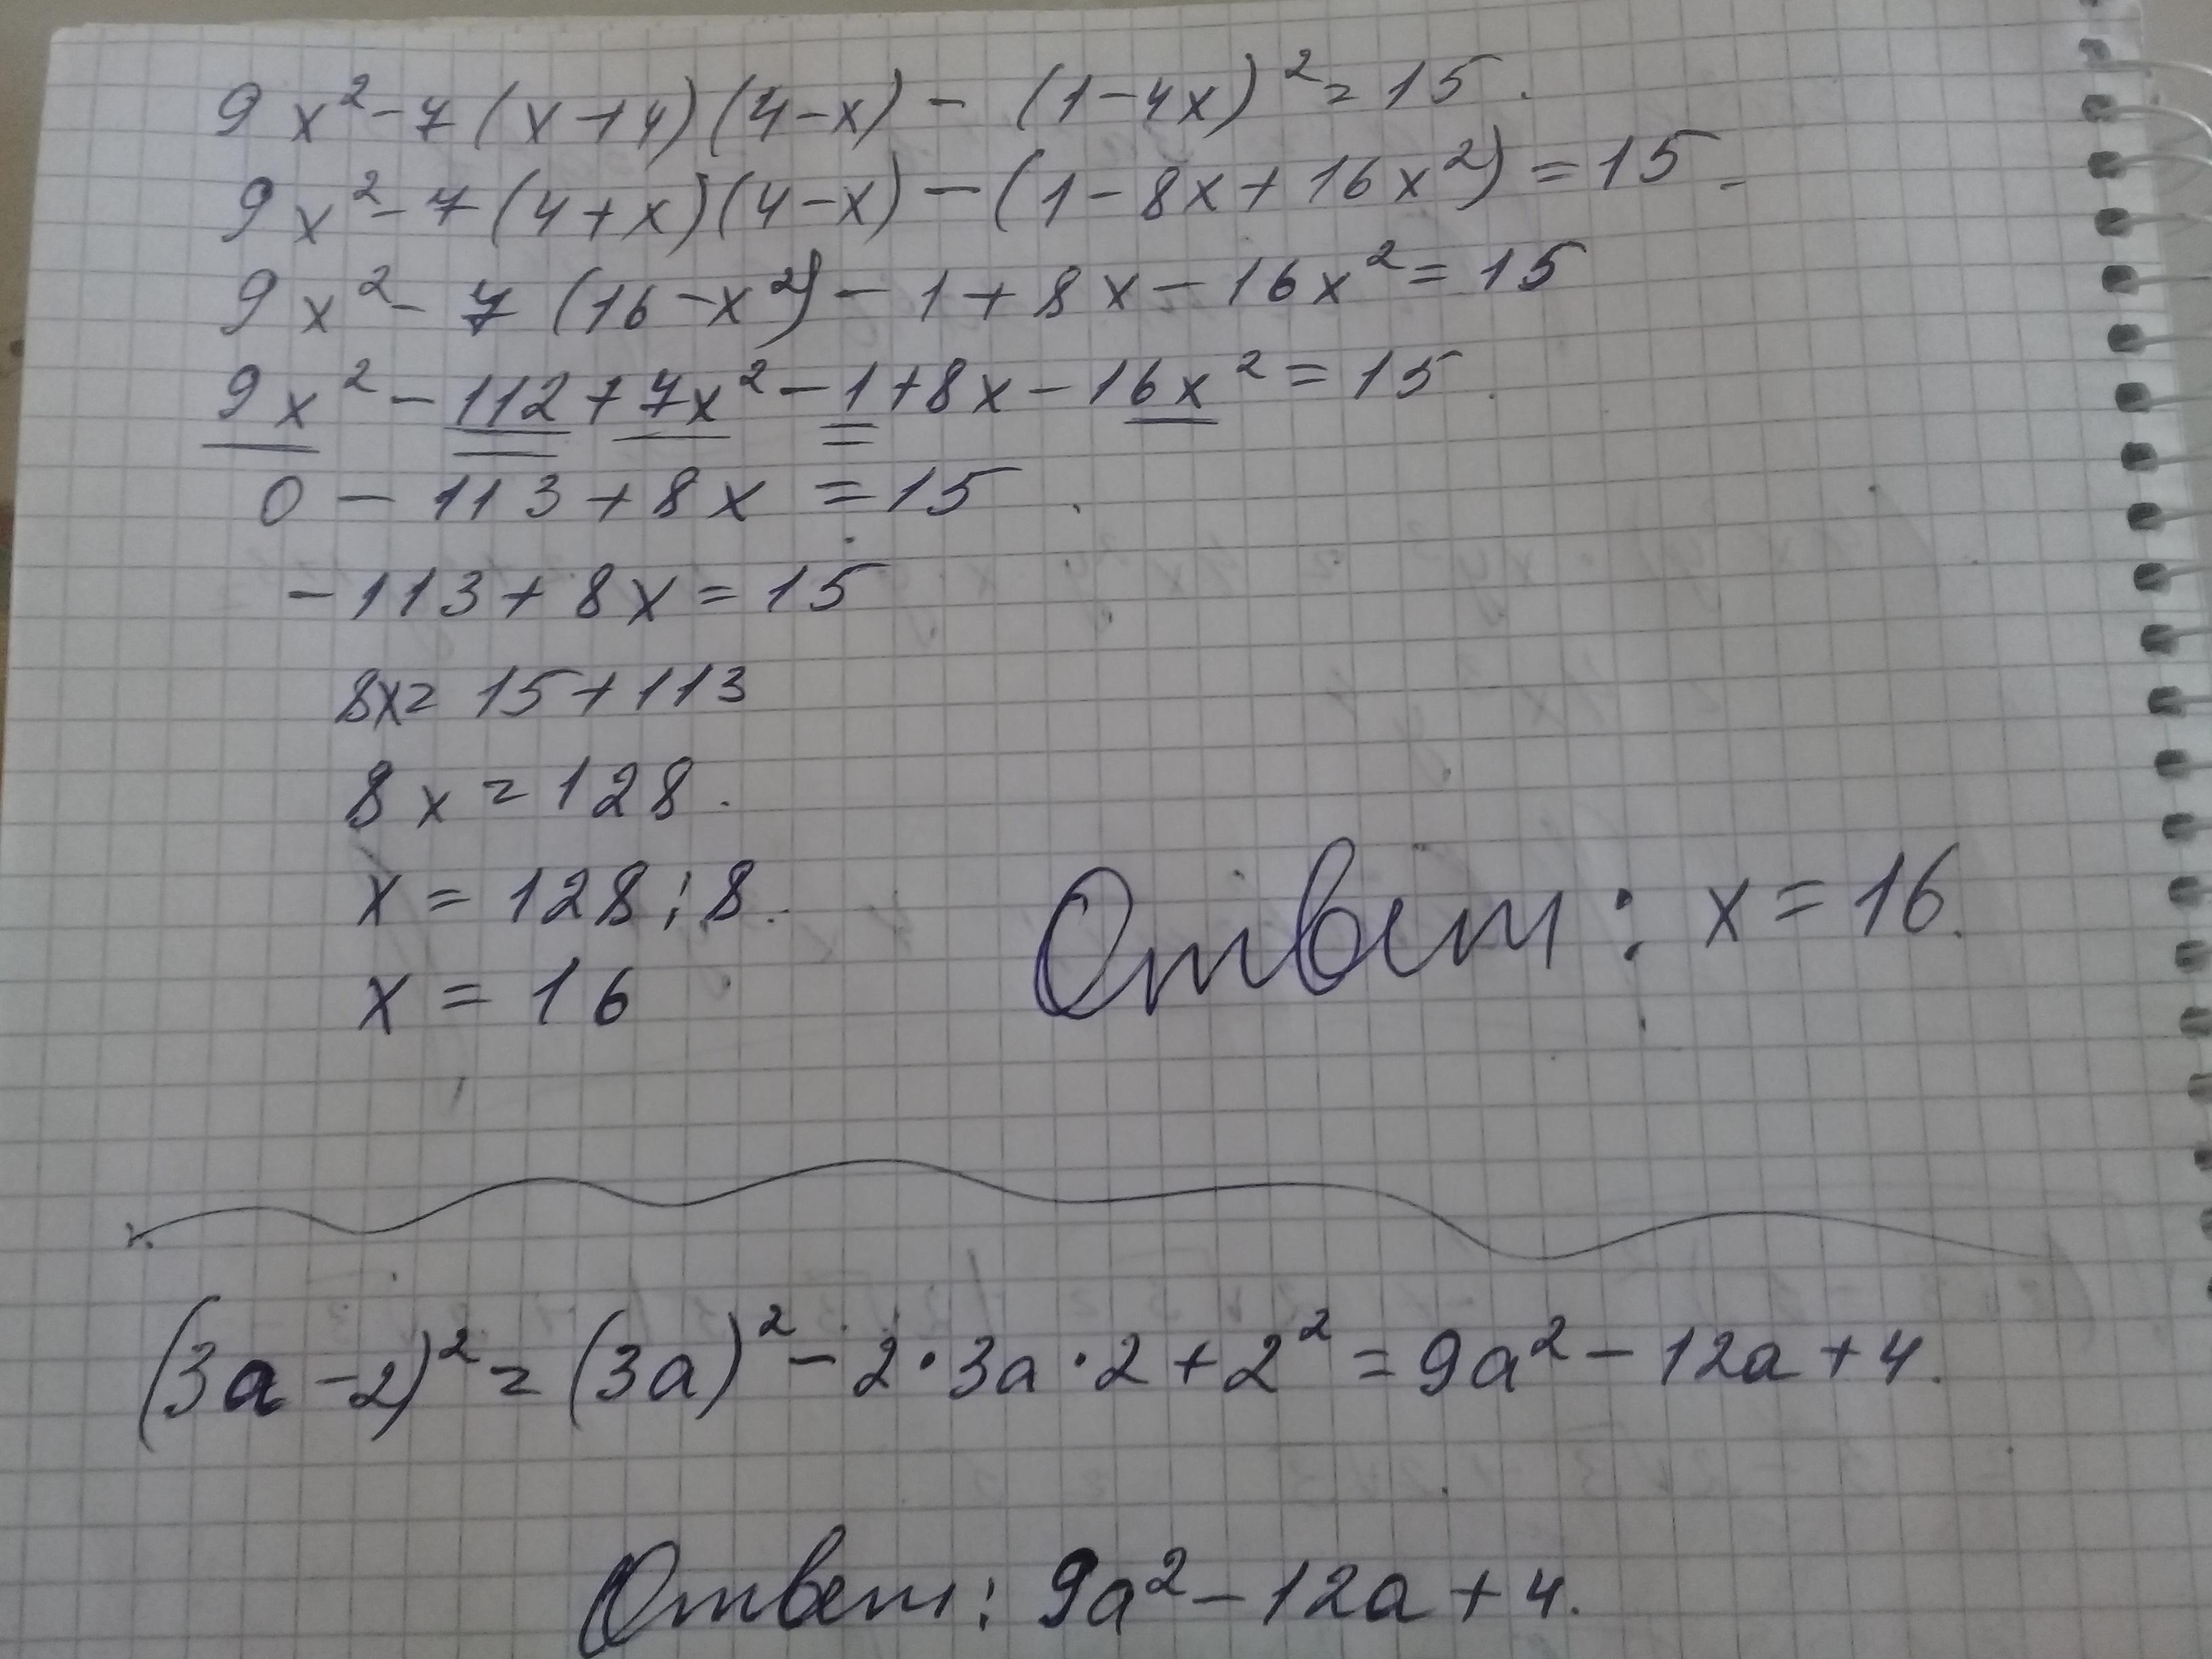 9x² - 7(x+4)(4-x) - (1-4x)² = 15.
9x² - 7(4+x)(4-x) - (1-8x+16x²) = 15
9x² - 7(16-x²) - 1 + 8x - 16x² = 15
9x² - 112 + 7x² - 1 + 8x - 16x² = 15.
0 - 113 + 8x = 15
-113 + 8x = 15
8x = 15 + 113
8x = 128.
x = 128 : 8.
x = 16
Ответ: x = 16.
(3a-2)² = (3a)² - 2·3a·2 + 2² = 9a² - 12a + 4.
Ответ: 9a² - 12a + 4.